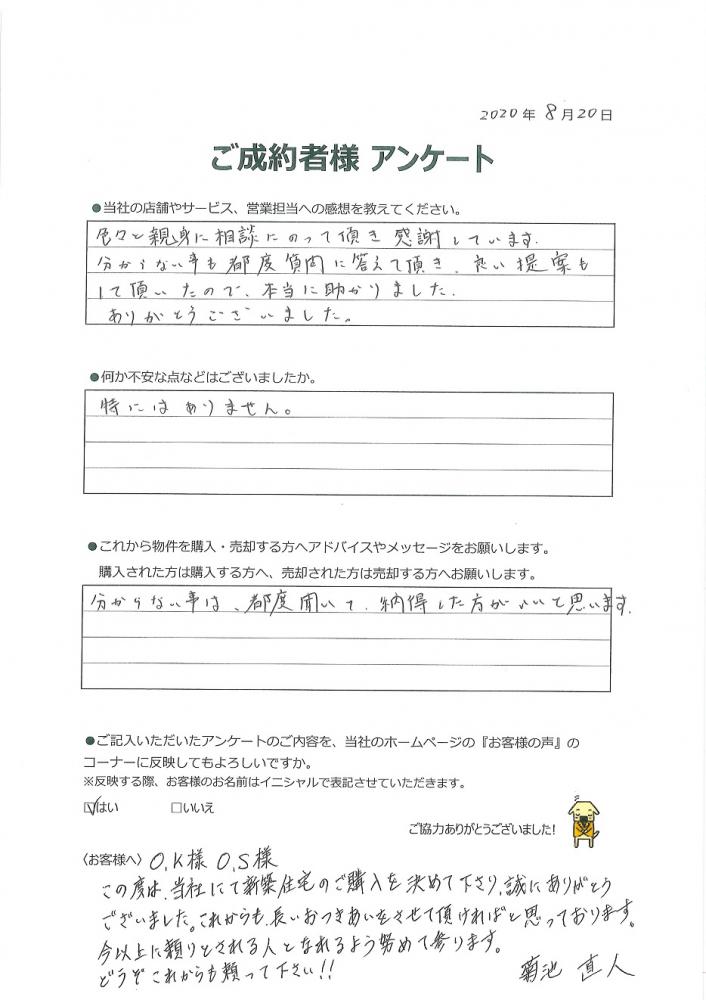 2020年 8月20日
ご成約者様 アンケート
●当社の店舗やサービス、営業担当への感想を教えてください。
色々と親身に相談にのって頂き 感謝しています.
分からない事も都度質問に答えて頂き、良い提案も
して頂いたので、本当に助かりました.
ありがとうございました。
●何か不安な点などはございましたか。
特にはありません。
●これから物件を購入・売却する方へアドバイスやメッセージをお願いします。
購入された方は購入する方へ、売却された方は売却する方へお願いします。
分からない事は、都度聞いて、納得した方がいいと思います.
●ご記入いただいたアンケートのご内容を、当社のホームページの『お客様の声』の
コーナーに反映してもよろしいですか。
※反映する際、お客様のお名前はイニシャルで表記させていただきます。
☑はい □いいえ
ご協力ありがとうございました!
〈お客様へ〉 O.K様 O.S様
この度は、当社にて新築住宅のご購入を決めて下さり、誠にありがとう
ございました。これからも、長いおつきあいをさせて頂ければと思っております。
今以上に頼りとされる人となれるよう努めて参ります。
どうぞこれからも頼って下さい!! 菊池 直人